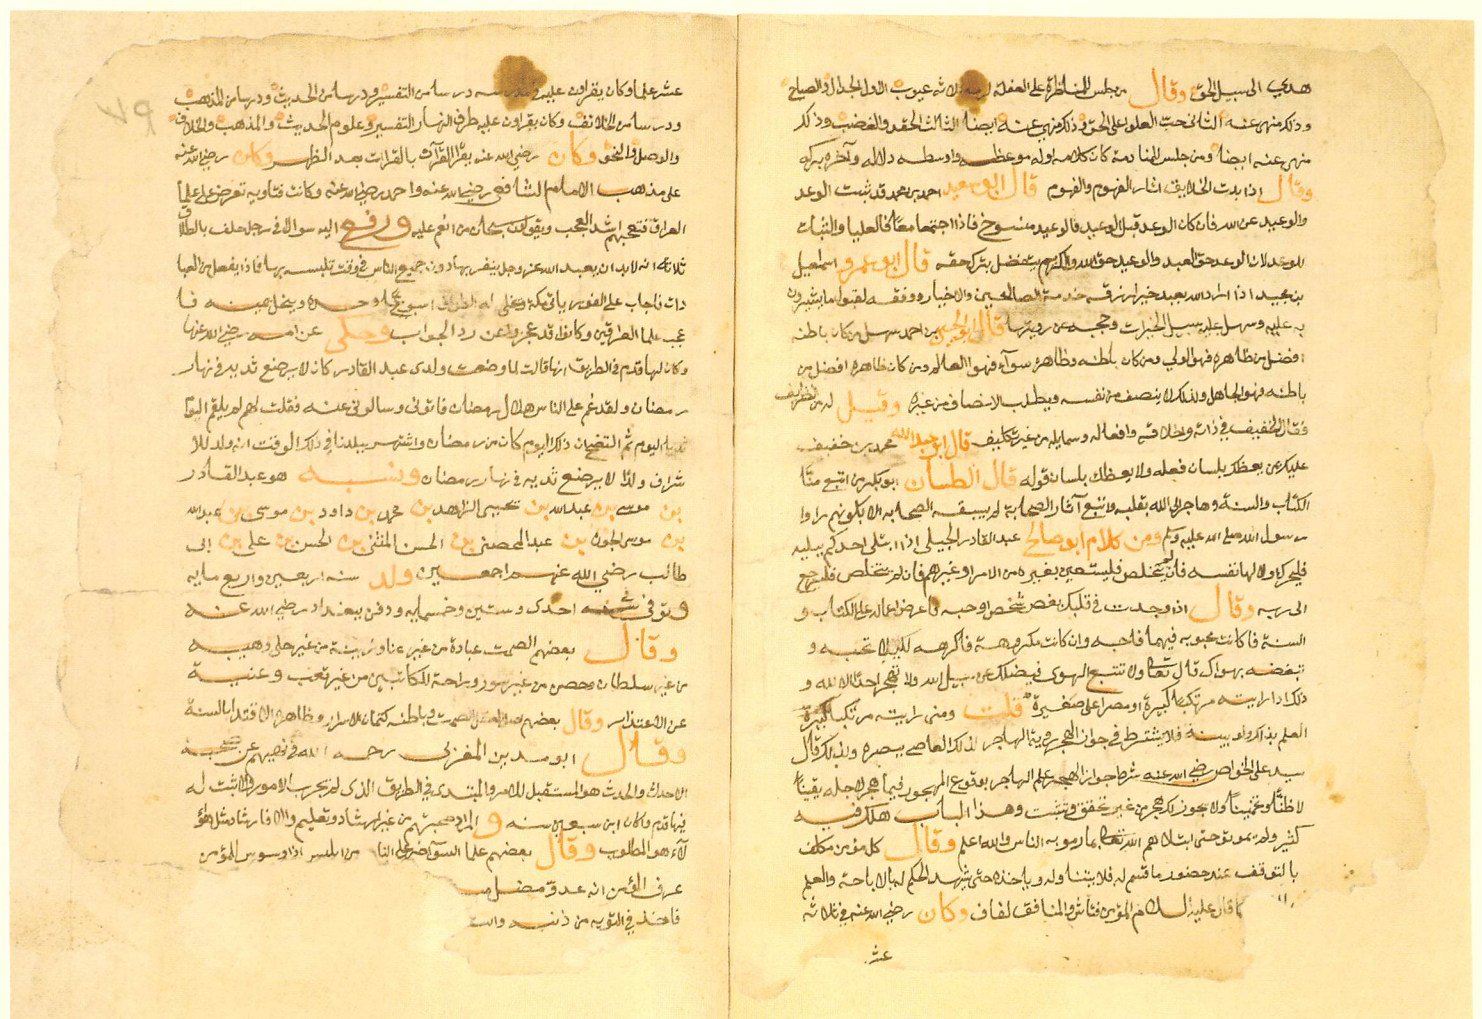 هدي الى سبيل الحق وقال من جلس للمناظرة على الغفلة لزمه ثلاثة عيوب الاول الجدال والصياح
وذلك منهى عنه الثانى حب العلو على الخلق وذلك منهى عنه ايضا الثالث الحقد والغضب وذلك
منهى عنه ايضا ومن جلس للمناصحة كان كلامه اوله موعظه واوسطه دلاله وآخره بركه
وقال اذا بدت الحقايق اثار الفهوم والفهوم قال ابو سعيد احمد بن محمد قد ثبت الوعد
والوعيد عن الله فان كان الوعد قبل الوعيد فالوعيد منسوخ فاذا اجتمعا معا فالعليا والثبات
للوعد لان الوعد حق العبد والوعيد حق الله والكريم يتفضل بترك حقه قال ابو عمرو اسمعيل
بن نجيد اذا اراد الله بعبد خيرا رزقه خدمة الصالحين والاخيار ووفقه لقبول ما يشيرون
به عليه وسهل عليه سبيل الخيرات وحجبه عن رويتها قال ابو الحسين بن احمد بن سهل من كان باطنه
افضل من ظاهره فهو الولي ومن كان باطنه وظاهره سوآء فهو العالم ومن كان ظاهره افضل من
باطنه فهو الجاهل ولذلك لا ينصف من نفسه ويطلب الانصاف من غيره وقيل له من الظريف
فقال الخفيف في ذاته واخلاقه وافعاله وشمايله من غير تكليف قال ابو عبد الله محمد بن خفيف
عليك بمن يعظك بلسان فعله ولا يعظك بلسان قوله قال الطمستان ابو بكر من اتبع منا
الكتاب والسنة وهاجر الى الله بقلبه واتبع آثار الصحابة لم يسبقه الصحابه الا بكونهم راوا
رسول الله صلى الله عليه وسلم ومن كلام ابو صالح عبد القادر الجيلى اذا ابتلى احدكم ببليه
فليحرك اولا لها نفسه فان لم يتخلص فليستعين بغيره من الامرا وغيرهم فان لم يتخلص فليرجع
الى ربه وقال اذا وجدت في قلبك بغض شخص او حبه فاعرض اعماله على الكتاب و
السنة فان كانت محبوبه فيهما فاحبه وان كانت مكروهة فاكرهه لكيلا تحبه و
تبغضه بهواك قال تعالى ولا تتبع الهوى فيضلك عن سبيل الله ولا تهجر احدًا الا لله و
ذلك اذا رايته مرتكبا كبيرة او مصرا على صغيرة قلت ومتى رايته مرتكبا كبيرة
العلم بذلك ولو ببينة فلا يشترط في جواز الهجر روية الهاجر لذلك العاصى ببصره ولذلك قال
سيد على الخواص رضي الله عنه شرط جواز الهجر علم الهاجر بوقوع المهجور فيما هجر لاجله يقينًا
لا ظنًا وتخمينًا ولا يجوز له هجر من غير تحقق وتثبت وهذا الباب هلك فيه
كثير ولم يموتو حتى ابتلاهم الله تعالى بما رموا به الناس والله اعلم وقال كل مؤمن مكلف
بالتوقف عند حضور ما قسم له فلا يتناوله وياخذه حتى يشهد الحكم له بالاباحة والعلم
كما قال عليه السلام المؤمن فتاش والمنافق لفاف وكان رضي الله عنه في ثلاثة
عشر
٧٩
عشر علما وكان يقراون عليه في مدرسه درسا من التفسير ودرسا من الحديث ودرسا من المذهب
ودرسا من الخلاف وكان يقراون عليه طرف النهار التفسير وعلوم الحديث والمذهب والخلاف
والاصول والنحو وكان رضي الله عنه يقرا القرآن بالقرات بعد الظهر وكان رضي الله عنه
على مذهب الامام الشافعى رضي الله عنه واحمد رضي الله عنه وكانت فتاويه تعرض على علما
العراق فتعجبهم اشد العجب ويقولون سبحان من انعم عليه ورفع اليه سوال في رجل حلف بالطلاق
ثلاثة انه لابد ان يعبد الله عز وجل ينفرد بها دون جميع الناس في وقت تلبسه بها فماذا يفعل من العبا
دات فاجاب على الفور ياتي مكة ويخلى له المطاف اسبوع يطوف وحده ويخل يمينه فا
عجب علما العراقين وكانوا قد عجزوا عن رد الجواب وحكى عن امه رضي الله عنها
وكان لها قدم في الطريق انها قالت لما وضعت ولدى عبد القادر كان لا يرضع ثديه في نهار
رمضان ولقد غم على الناس هلال رمضان فاتونى وسالونى عنه فقلت لهم لم يلقم اليوم
ثديا اليوم ثم اتضح ان ذلك اليوم كان من رمضان واشتهر ببلدنا في ذلك الوقت انه ولد للا
شراف ولدًا لا يرضع ثديه في نهار رمضان ونسبه هو عبد القادر
بن موسى بن عبد الله بن يحيى الزاهد بن محمد بن داود بن موسى بن عبد الله
بن موسى الجون بن عبد المحض بن الحسن المثنى بن الحسن بن على بن ابى
طالب رضي الله عنهم اجمعين ولد سنه اربعين واربع مايه
وتوفى سنه احدى وستين وخمسمايه ودفن ببغداد رضي الله عنه
وقال بعضهم الصمت عبادة من غير عنا وزينة من غير حلى وهيبه
من غير سلطان وحصن من غير سور وراحة للكاتبين من غير تعب وغنية
عن الاعتذار وقال بعضهم الصمت في باطنه كتمان الاسرار وظاهره الاقتدا بالسنة
وقال ابو مدين المغربى رحمه الله في نهيهم عن صحبة
الاحداث والحدث هو المستقبل للامر والمبتدى في الطريق الذى لم يجرب الامور ولا ثبت له
فيها قدم ولو كان ابن سبعين سنه والمراد صحبتهم من غير ارشاد وتعليم والا فارشاد مثل هؤ
لآء هو المطلوب وقال بعضهم علما السوء اضر على الناس من ابليس اذا وسوس للمؤمن
عرف المؤمن انه عدو مضل
فاخذ في التوبه من ذنبه واست